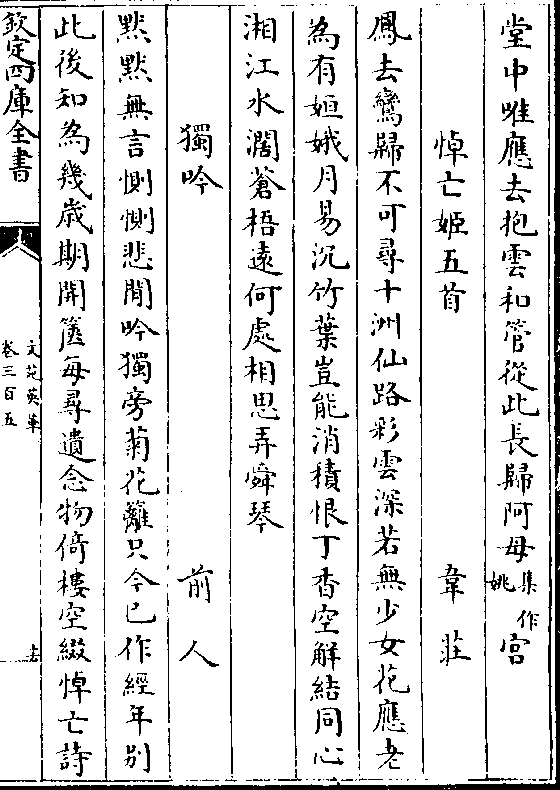 堂中唯應去抱雲和管從此長歸阿母集作姚宮
悼亡姬五首　韋莊
鳳去鸞歸不可尋十洲仙路彩雲深若無少女花應老
為有姮娥月易沉竹葉豈能消積恨丁香空解結同心
湘江水濶蒼梧遠何處相思弄舜琴
獨吟　前人
默默無言惻惻悲閒吟獨旁菊花籬只今已作經年别
此後知為幾歲期開篋每尋遺念物倚樓空綴悼亡詩
欽定四庫全書
文苑英華
卷三百五